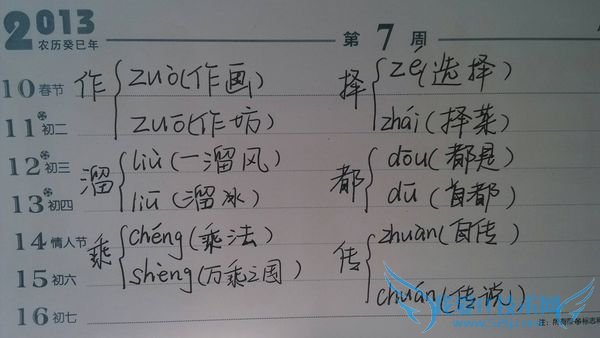 2013
农历癸巳年
第7周
10 春节
11 初二
12 初三
13 初四
14 情人节
15 初六
16 初七
作 zuò(作画)
zuō(作坊)
溜 liù(一溜风)
liū(溜冰)
乘 chéng(乘法)
shèng(万乘之国)
择 zé(选择)
zhái(择菜)
都 dōu(都是)
dū(首都)
传 zhuàn(自传)
chuán(传说)